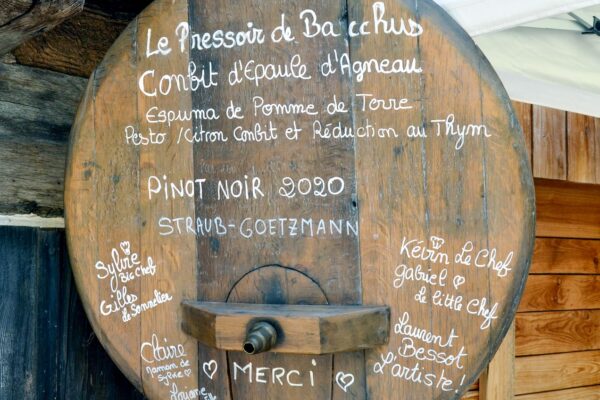 Le Pressoir de Bacchus
Confit d'Epaule d'Agneau
Espuma de Pomme de Terre
Pesto / Citron Confit et Réduction au Thym
PINOT NOIR 2020
STRAUB-GOETZMANN
Sylvie
Big Chef
Gilles
le Sommelier
Claire
Maman de
Sylvie
Kévin Le Chef
gabriel
le little Chef
Laurent
Bessot
L'artiste !
MERCI